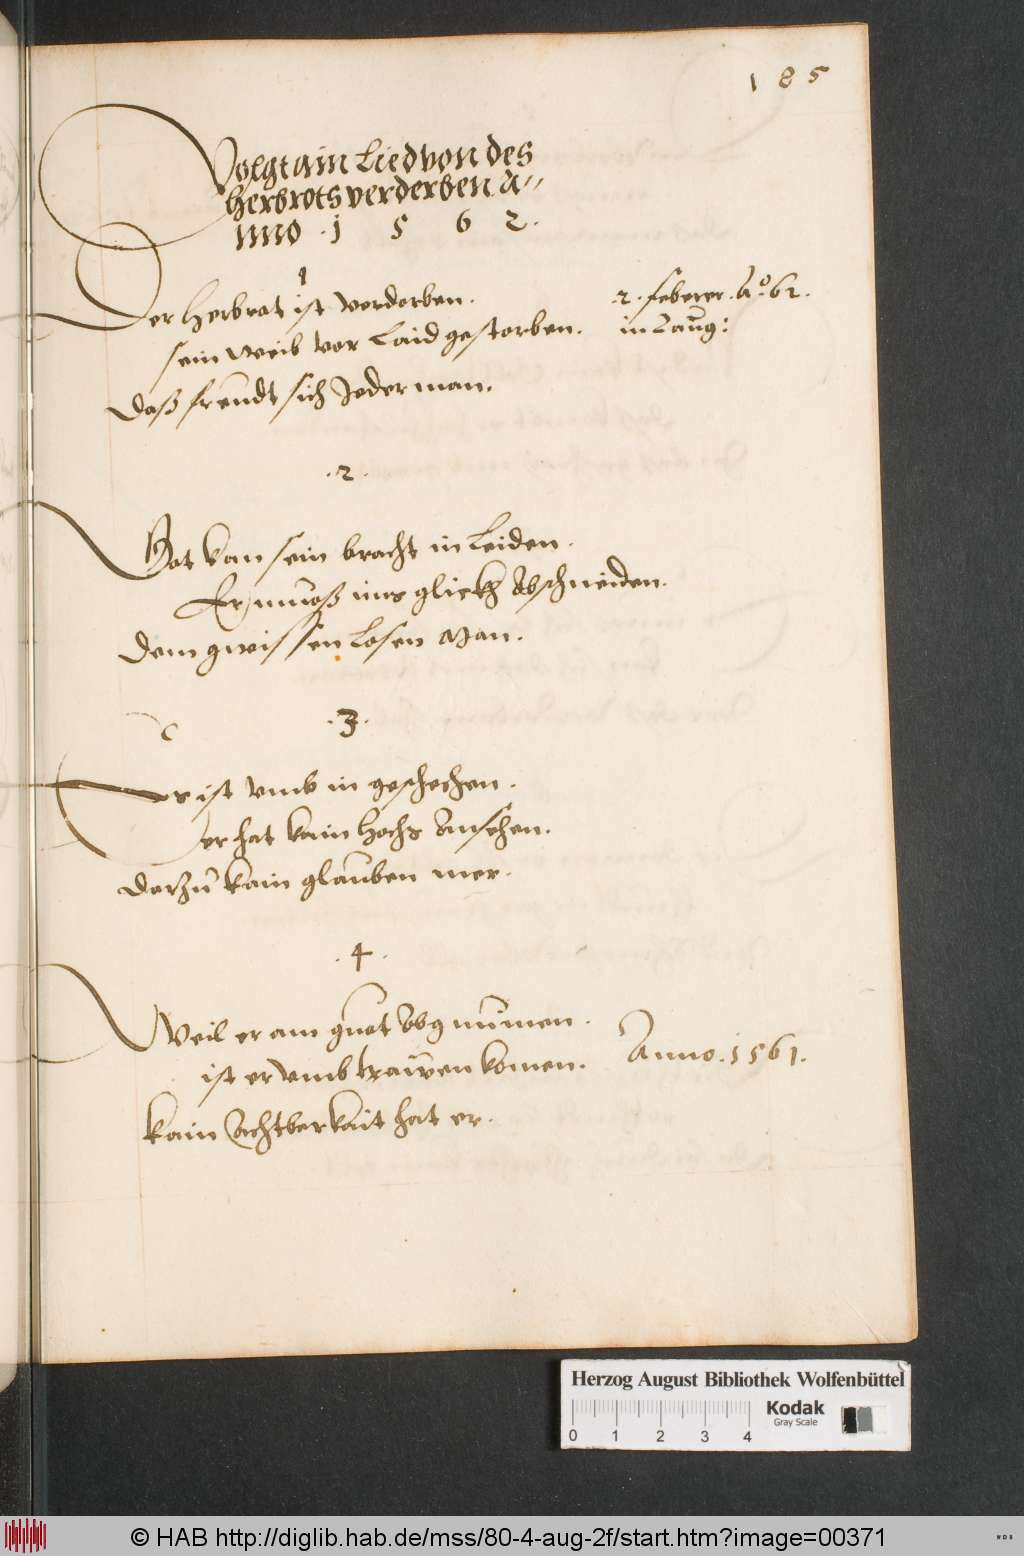 185
Volgt ain Lied von des
Herbrots verderben A„
nno . 1 5 6 2 .
1
Der Herbrot ist verdorben.
sein Weib vor Laid gestorben.
2. feberer. Aº. 62.
in Laug:
Daß freudt sich Jederman.
. 2 .
Got kan sein bracht in Leiden.
Er muoß ims glickh Abschneiden.
Dem gwissen Losen Man.
. 3 .
Es ist umb in geschehen.
er hat kain Hochs Ansehen.
Darzu kain glauben mer.
. 4 .
Weil er am guot Abgnumen.
ist er umb trawen komen.
Anno. 1561.
kain Achtberkait hat er.
Herzog August Bibliothek Wolfenbüttel
Kodak
Gray Scale
0 1 2 3 4
© HAB http://diglib.hab.de/mss/80-4-aug-2f/start.htm?image=00371